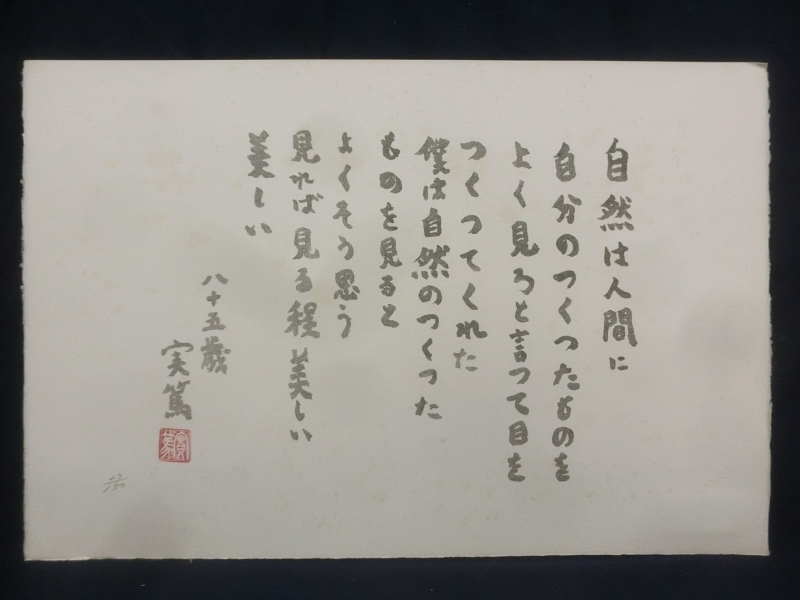 自然は人間に
自分のつくつたものを
よく見ろと言つて目を
つくつてくれた
僕は自然のつくつた
ものを見ると
よくそう思う
見れば見る程美しい
美しい
八十五歳
実篤